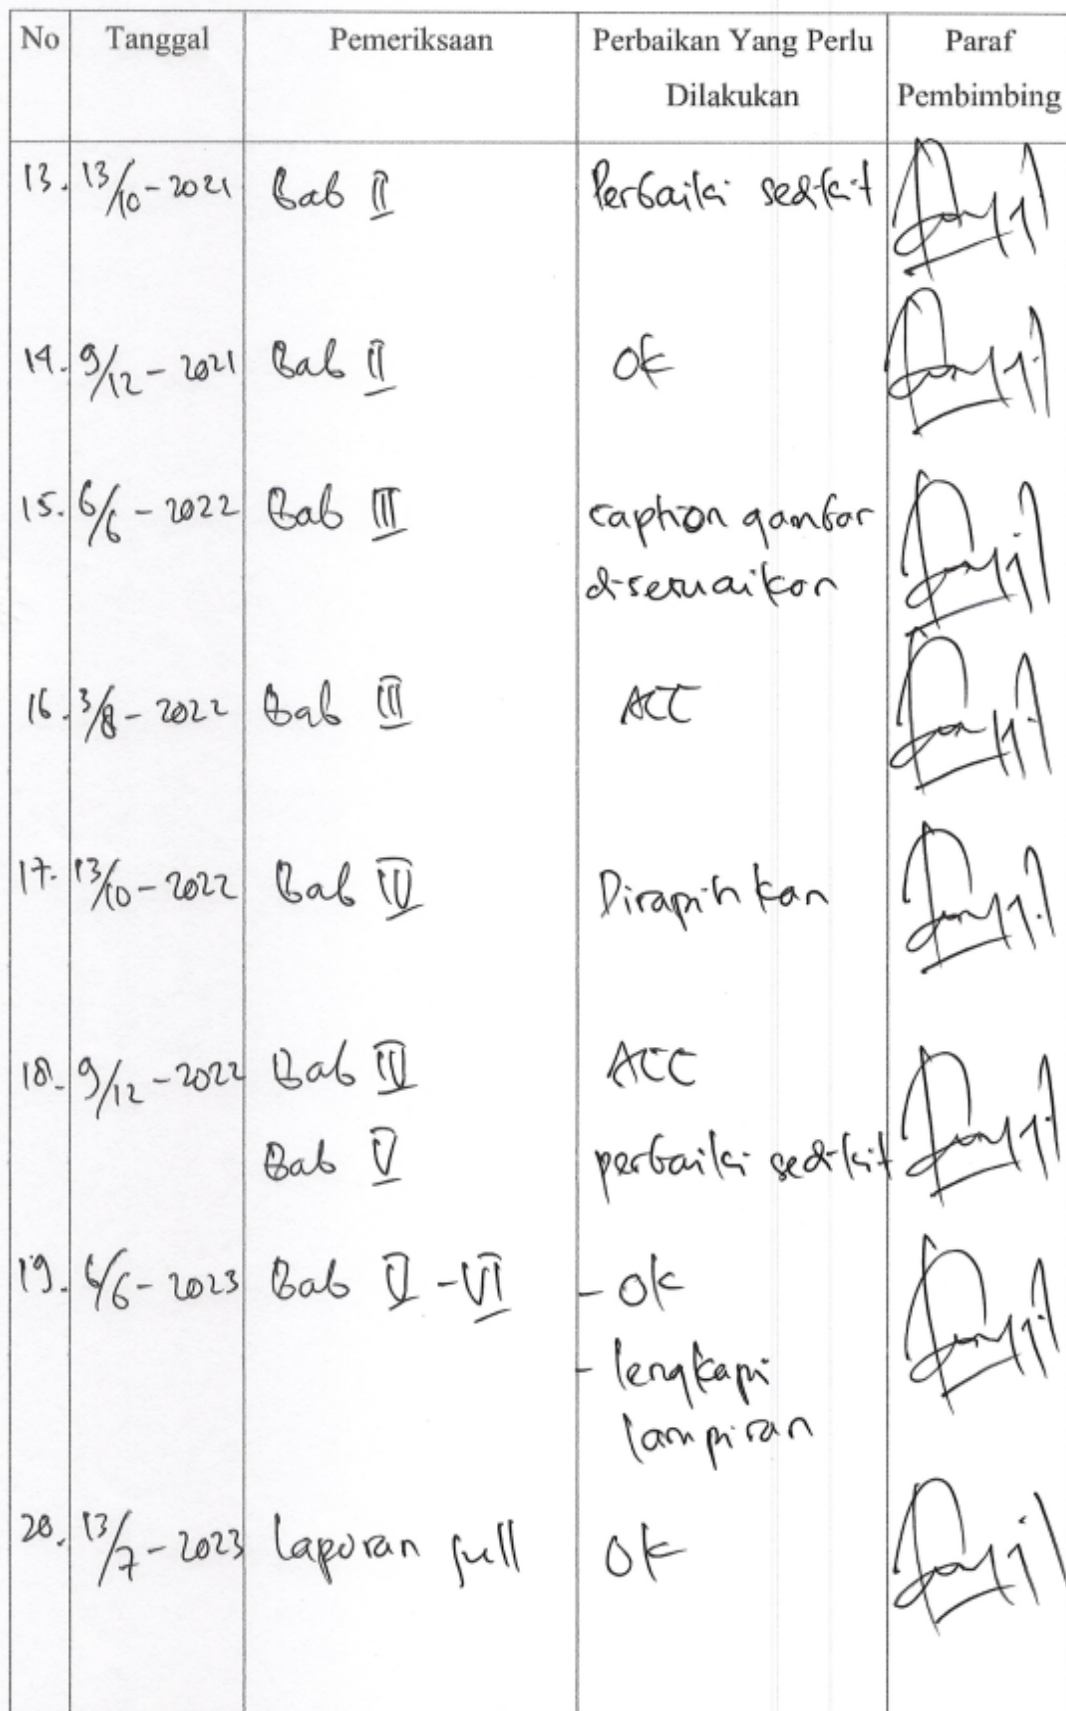 No Tanggal Pemeriksaan Perbaikan Yang Perlu Dilakukan Paraf Pembimbing
13. 13/10-2021 Bab II Perbaiki sedikit
14. 9/12-2021 Bab II Ok
15. 6/6-2022 Bab III caption gambar
disesuaikan
16. 3/8-2022 Bab III ACC
17. 13/10-2022 Bab IV Dirapihkan
18. 9/12-2022 Bab IV ACC
Bab V perbaiki sedikit
19. 6/6-2023 Bab V-VI - Ok
- lengkapi
lampiran
20. 13/7-2023 Laporan full Ok